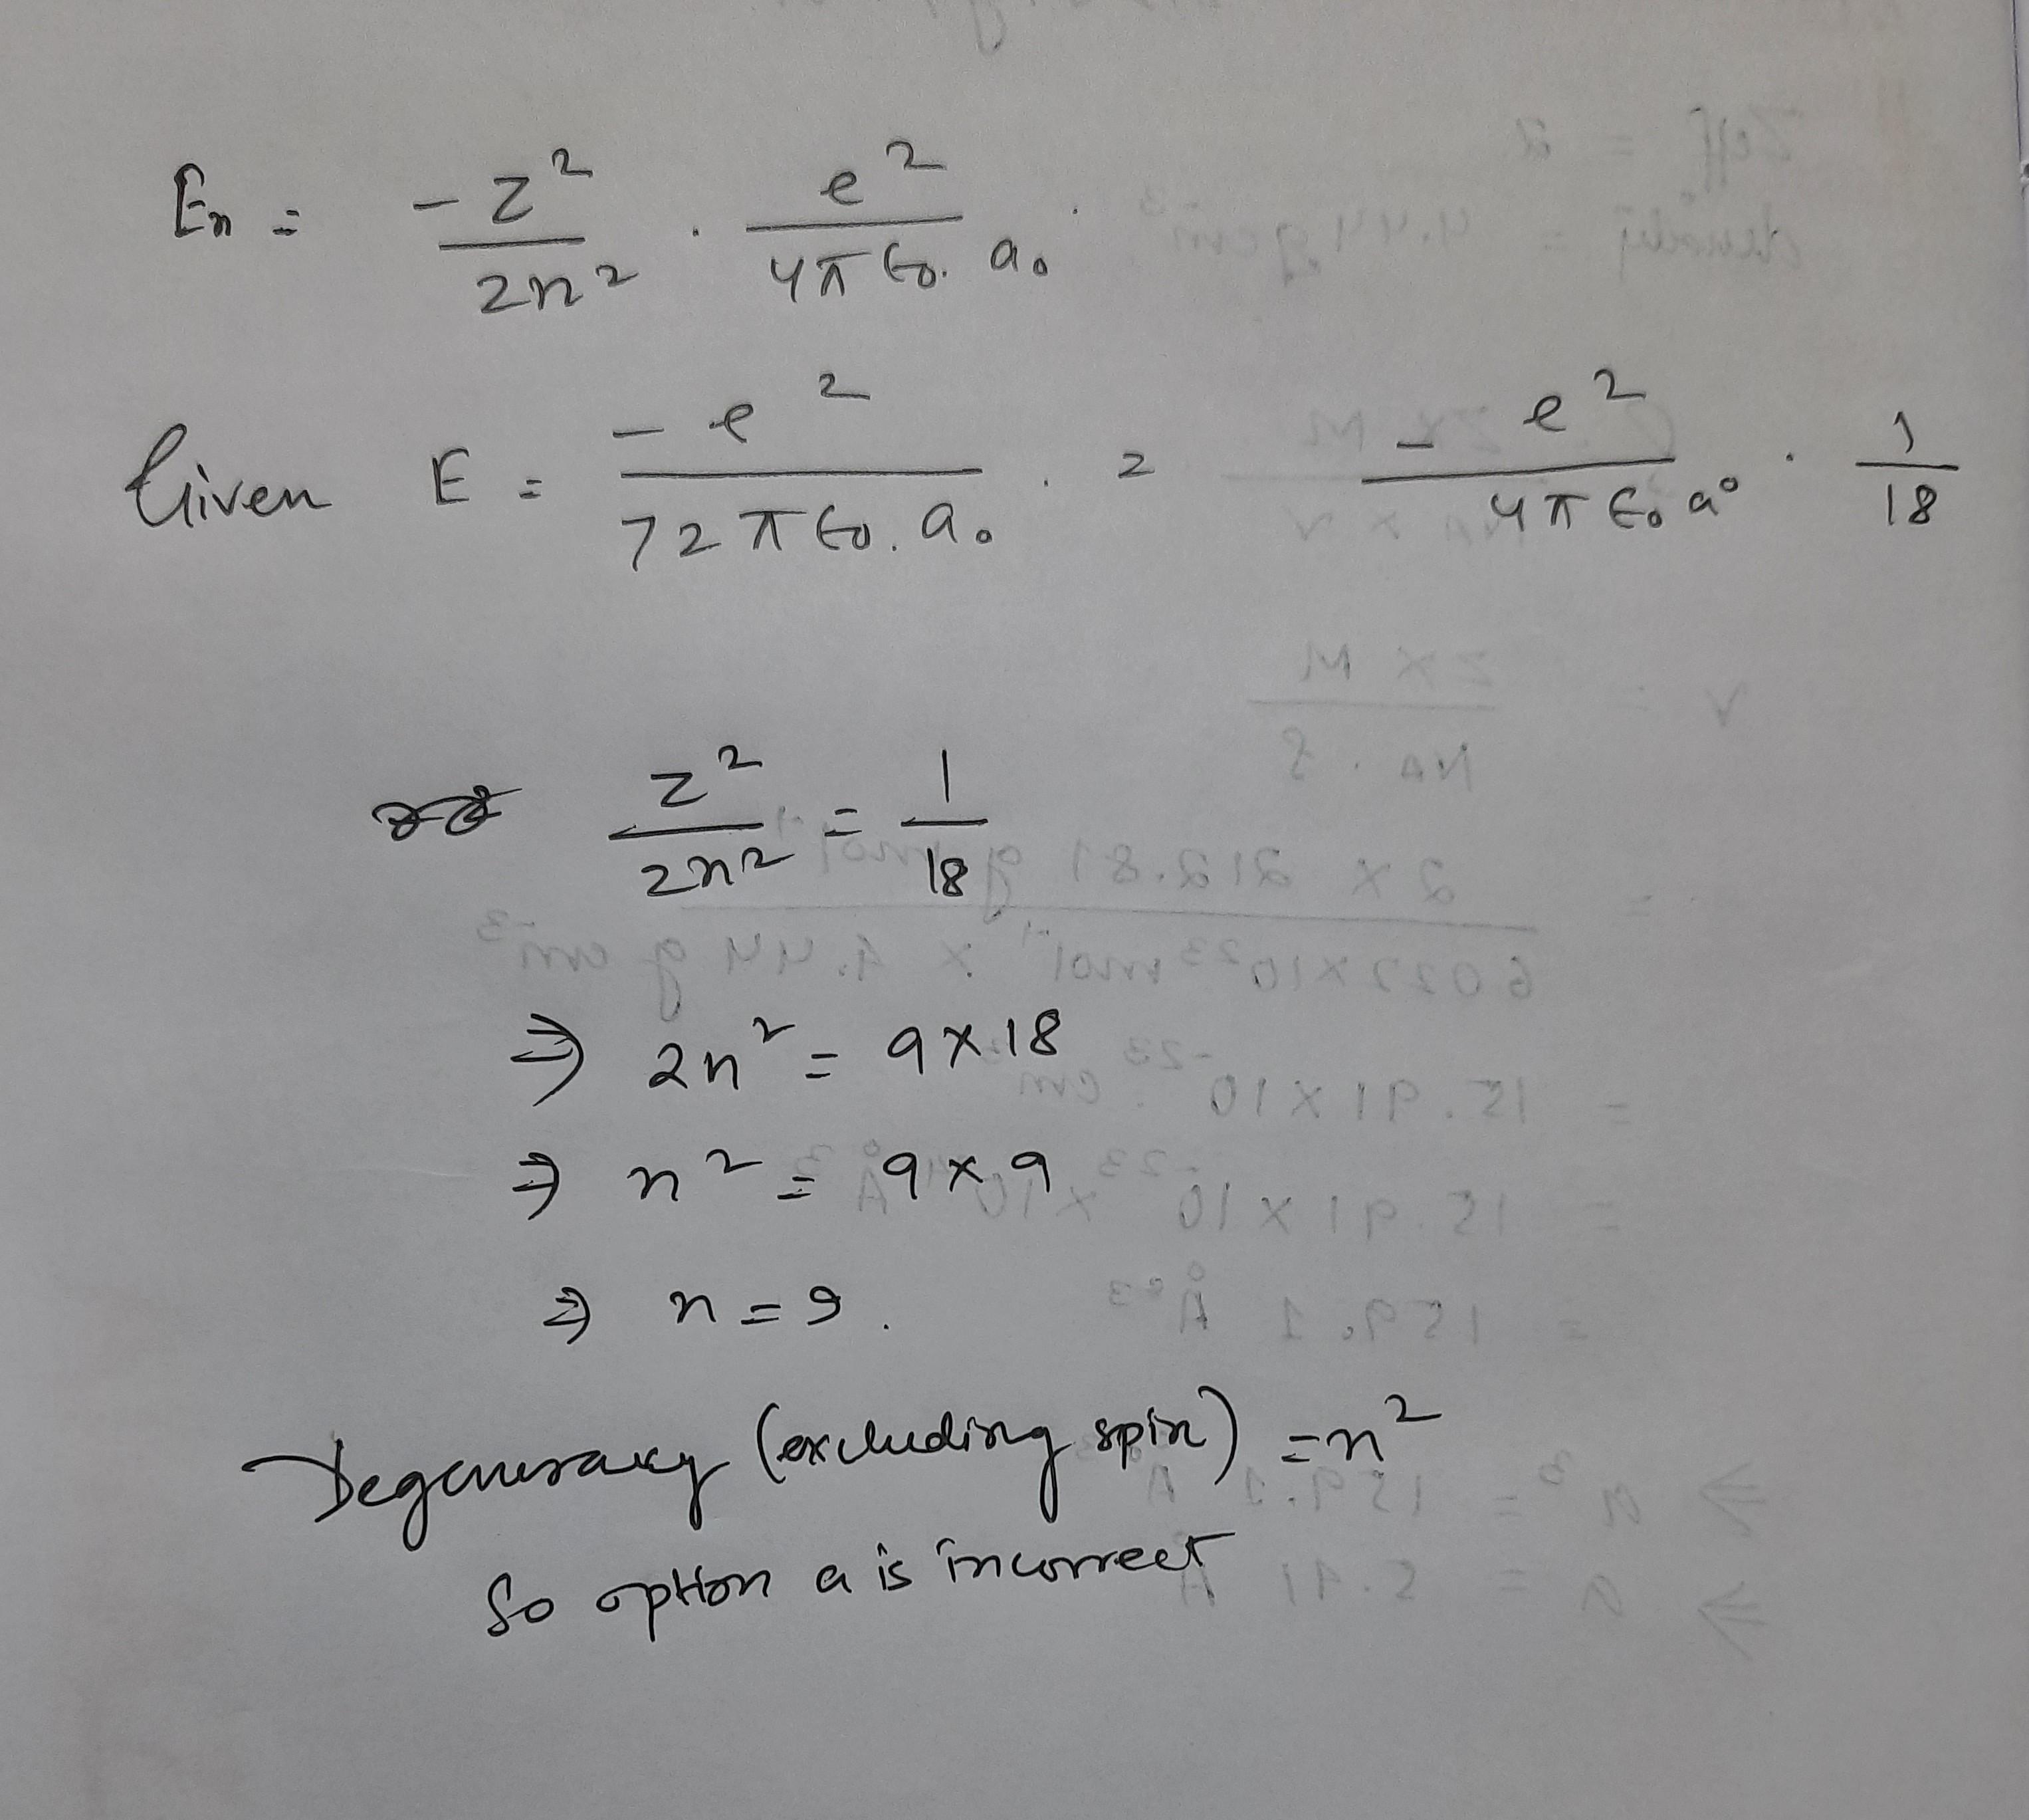 En = -Z² / 2n² . e² / 4π ε₀. a₀ .
Given E = -e² / 72 π ε₀. a₀ . = - e² / 4π ε₀ a⁰ . 1 / 18
Z² / 2n² = 1 / 18
⇒ 2n² = 9 × 18
⇒ n² = 9 × 9
⇒ n = 9 .
Degeneracy (excluding spin) = n²
So option a is incorrect